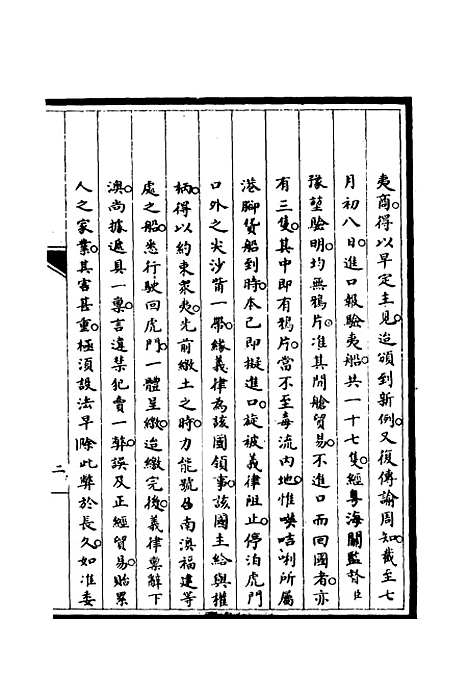 夷商。得以早定主見。迨頒到新例。又復傳諭周知。截至七
月初八日。進口報驗夷船共一十七隻。經粵海關監督臣
豫堃驗明。均無鴉片。准其開艙貿易。不進口而回國者。亦
有三隻。其中即有鴉片。當不至毒流內地。惟㗎咭唎所屬
港腳貨船到時。本已即擬進口。旋被義律阻止。停泊虎門
口外之尖沙嘴一帶。緣義律為該國領事。該國主給與權
柄。得以約束眾夷。先前繳土之時。力能號召南澳福建等
處之船。悉行駛回虎門。一體呈繳。迨繳完後。義律稟辭下
澳。尚據遞具一稟。言違禁犯賣一弊。誤及正經貿易。貽累
人之家業。其害甚重。極須設法早除此弊於長久。如准委
二